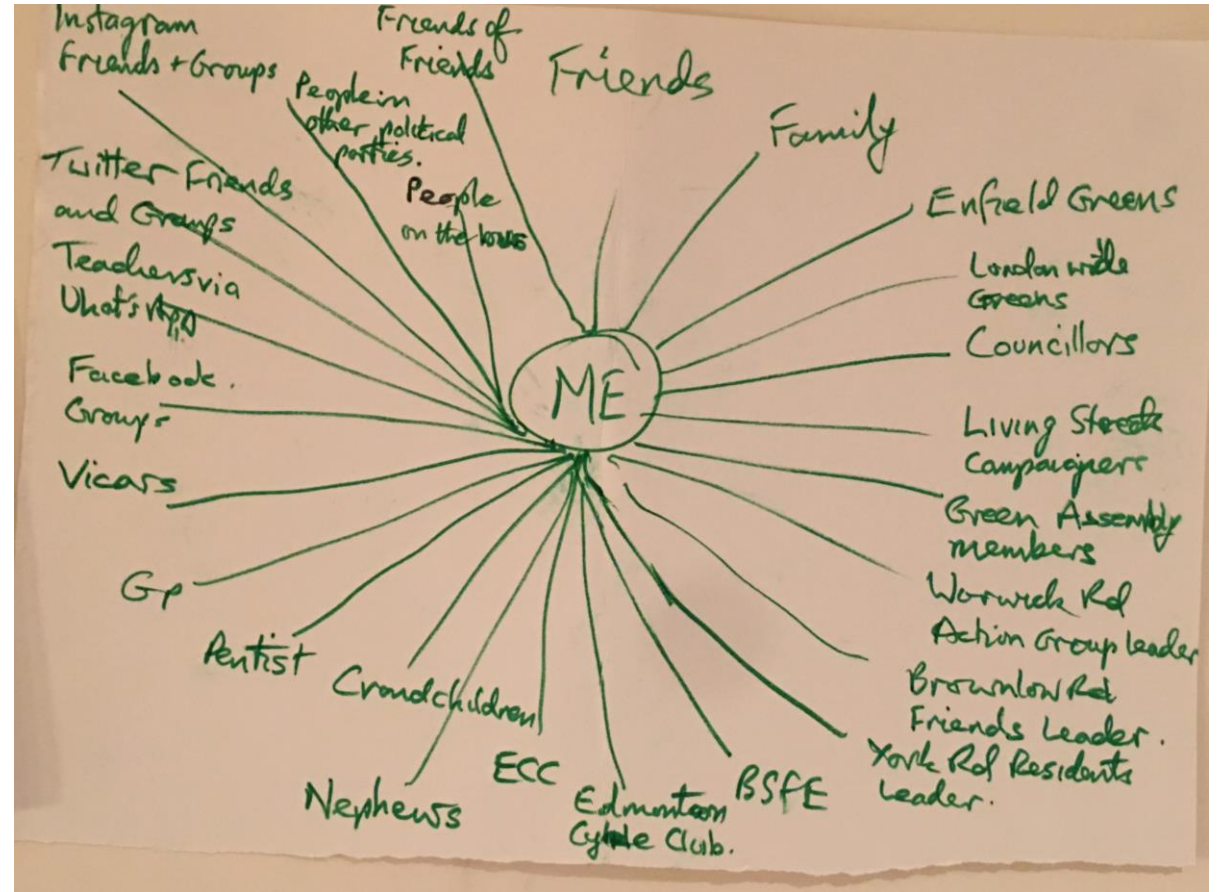 Instagram
Friends + Groups
People in
other political
parties.
Friends of
Friends
Friends
Family
Enfield Greens
London wide
Greens
Councillors
Living Streets
Campaigners
Green Assembly
members
Warwick Rd
Action Group leader
Brownlow Rd
Friends Leader.
York Rd Residents
Leader.
BSfE
Edmonton
Cycle Club.
ECC
Nephews
Grandchildren
Dentist
Gp
Vicars
Facebook.
Groups
Teachers via
What's App
Twitter Friends
and Groups
People
on the
ME